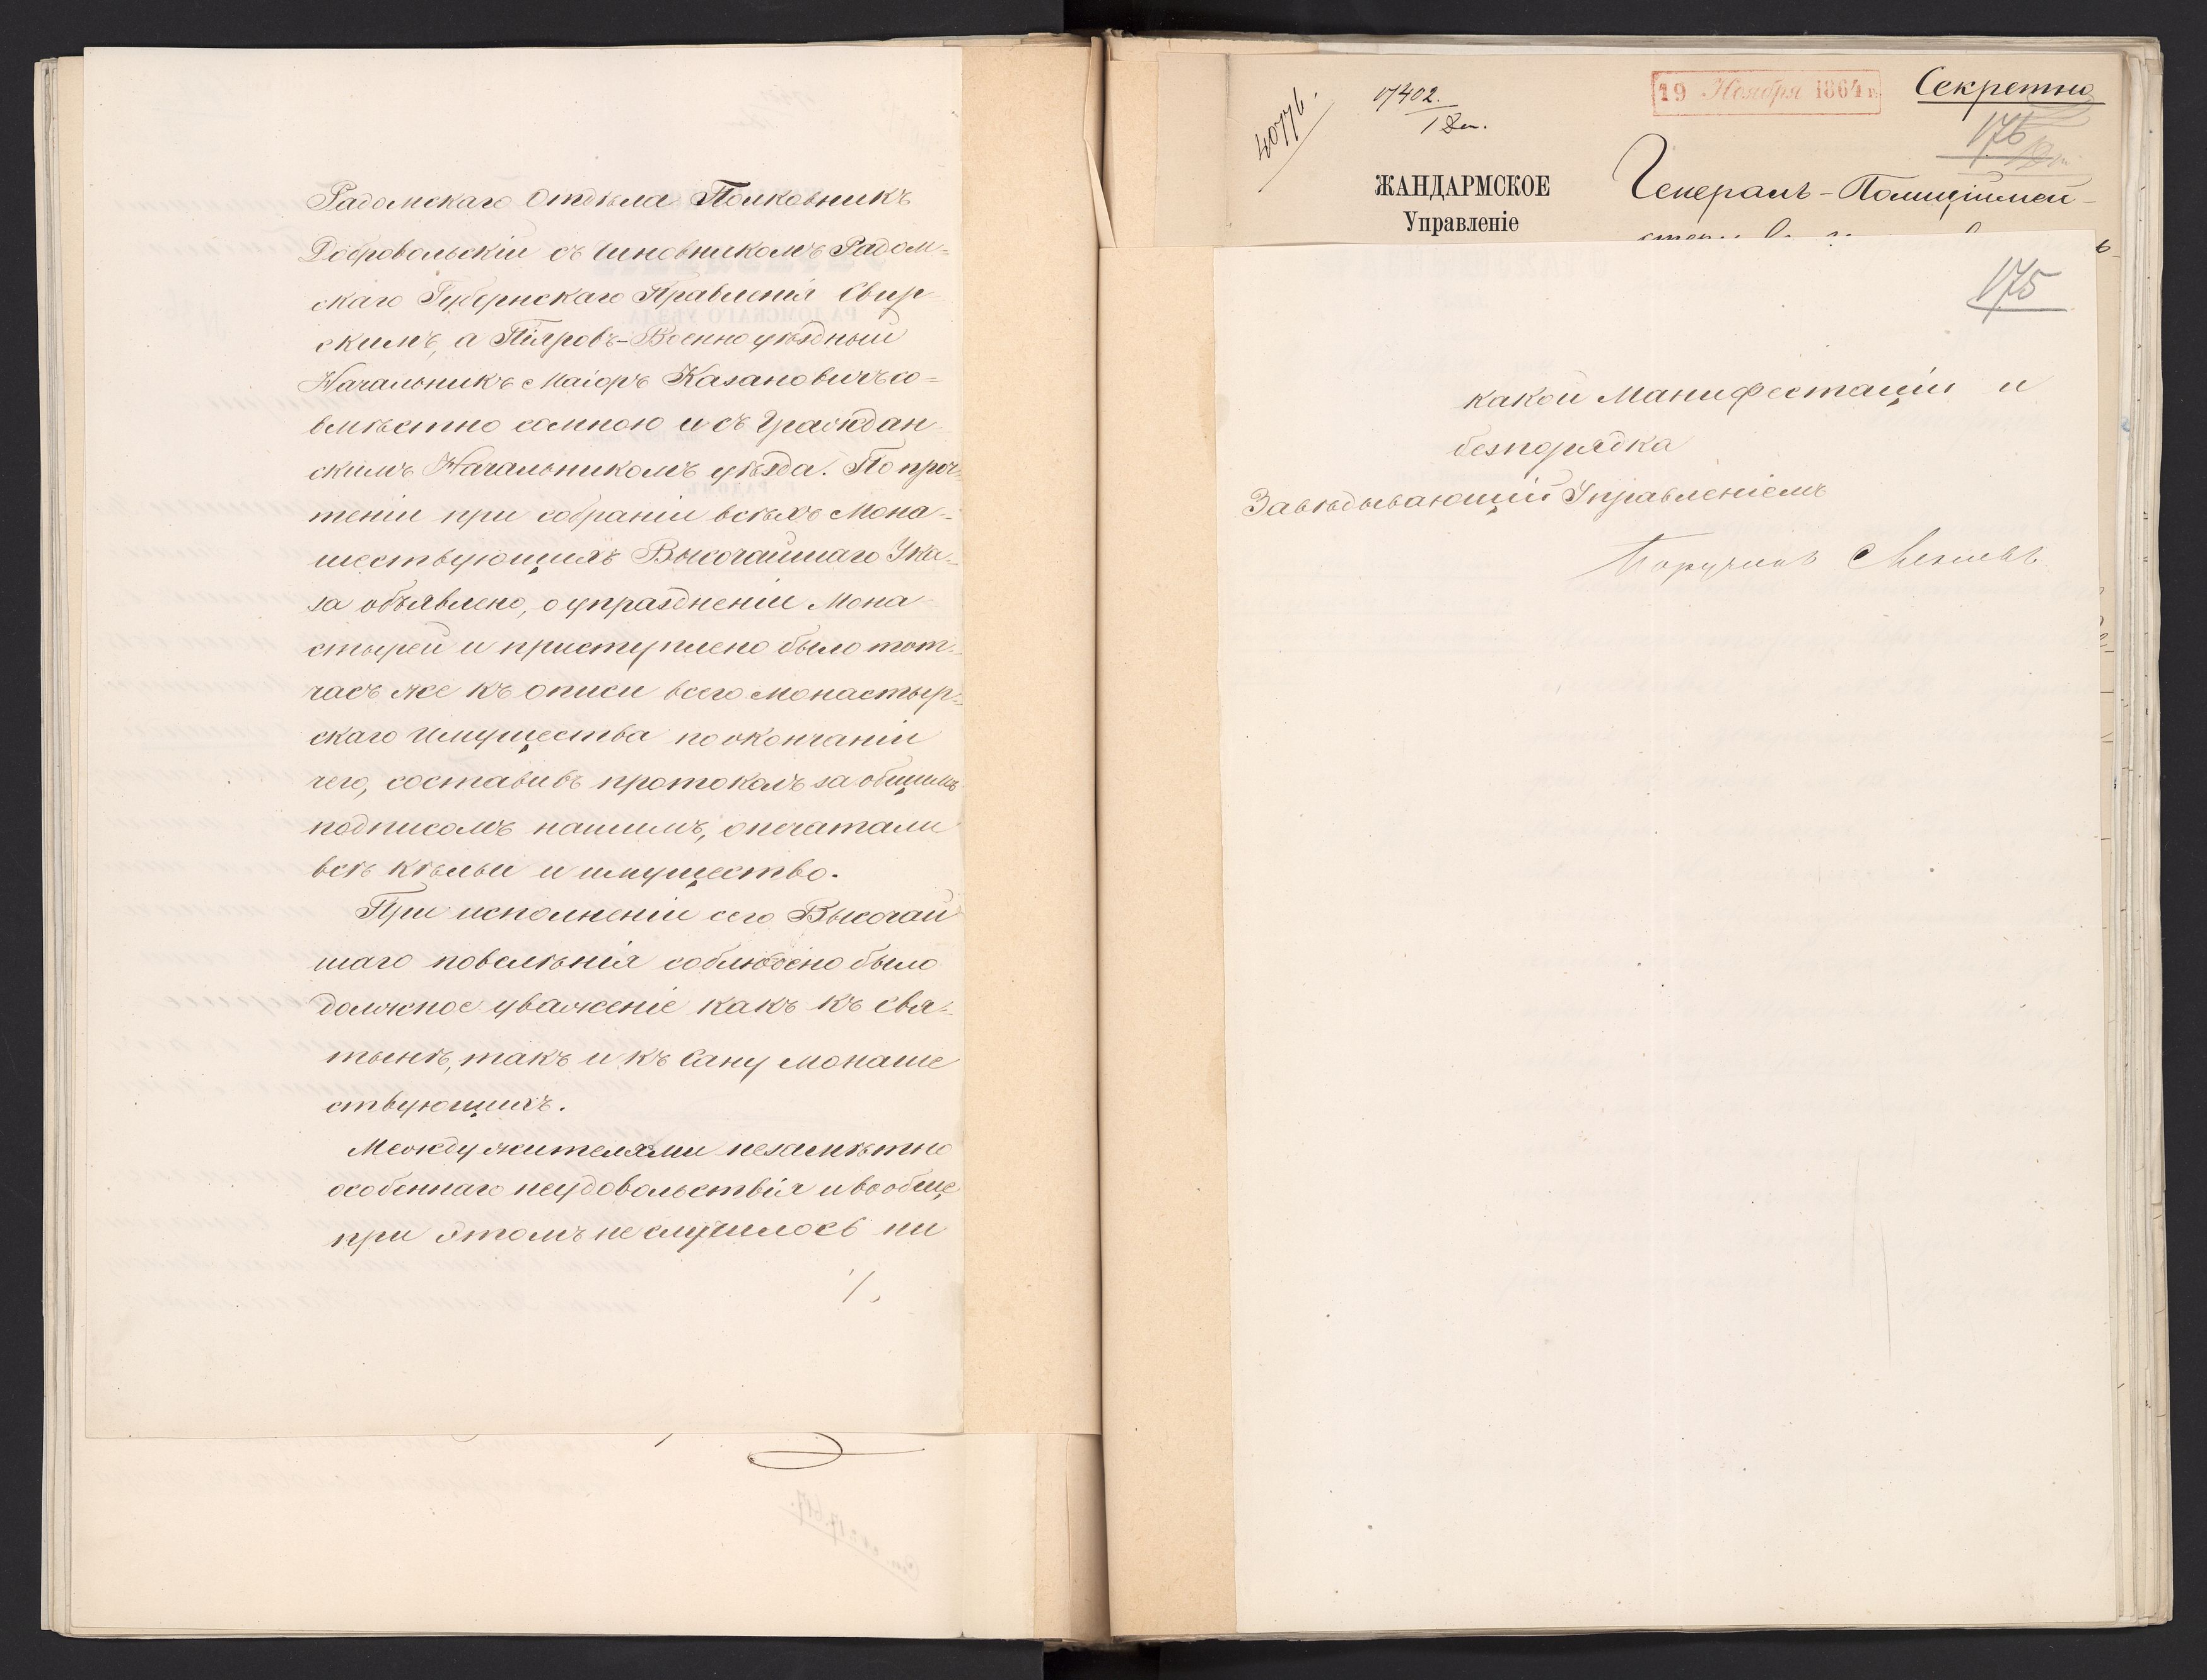 Радомскаго Отдѣла Полковникъ
Добровольскій съ чиновникомъ Радом=
скаго Губернскаго Правленія Свир-
скимъ, а Піяровъ-Военноуѣздный
Начальникъ Маіоръ Казановичъ со=
вмѣстно сомною и съ Граждан
скимъ Начальникомъ уѣзда. По проч=
теніи при собраніи всѣхъ Мона-
шествующихъ Высочайшаго Ука=
за объявлено, о упраздненіи Мона-
стырей и приступлено было тот-
часъ же къ описи всего монастыр=
скаго Имущества по окончаніи
чего, составивъ протоколъ за общимъ
подписомъ нашимъ, опечатали
всѣ кѣльи и имущество.
При исполненіи сего Высочай
шаго повелѣнія соблюдено было
должное уваженіе какъ къ свя=
тынѣ, такъ и къ Сану монаше
ствующихъ.
Между жителями незамѣтно
особеннаго неудовольствія и вообще
при этомъ не случилось ни
/.
40776.
17402.
1 Эк.
19 Ноября 1864 г.
Секретно
176
ЖАНДАРМСКОЕ
Управленіе
Генералъ-Полиціймей-
175
какой Манифестаціи и
безпорядка
Завѣдывающій Управленіемъ
Поручикъ